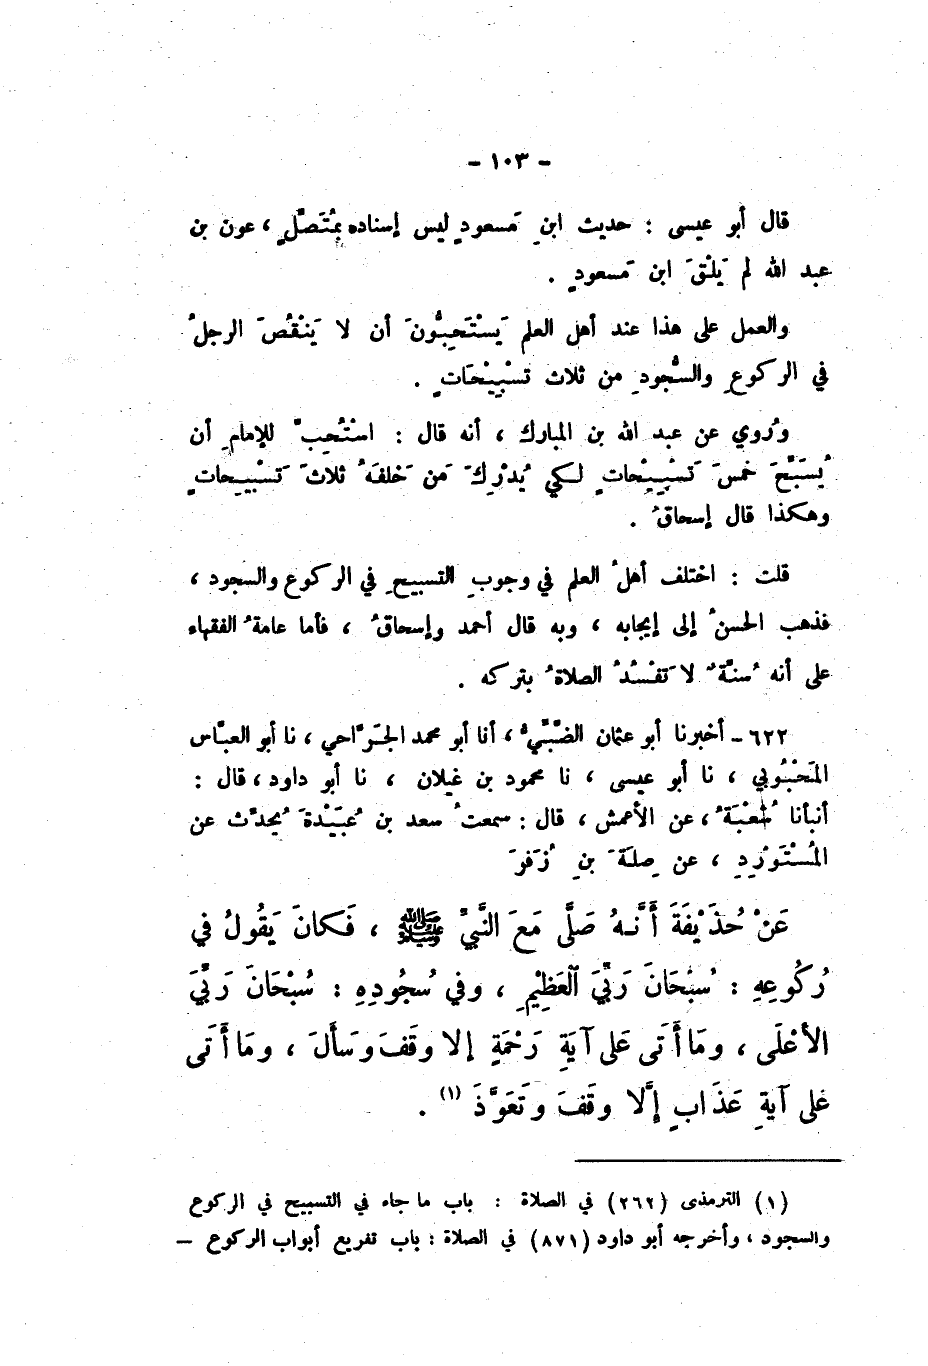 - ١٠٣ -
قال أبو عيسى : حديث ابنِ مَسعودٍ ليس إسناده بمُتَّصِلٍ ، عون بن
عبد الله لم يَلْقَ ابن مَسعودٍ .
والعمل على هذا عند أهل العلم يَسْتَحِبُّونَ أن لا يَنْقُصَ الرجلُ
في الركوعِ والسُّجودِ من ثلاث تسْبِيْحَاتٍ .
ورُوي عن عبد الله بن المبارك ، أنه قال : اسْتُحِبَّ للإمامِ أن
يُسَبِّحَ خمسَ تَسْبِيْحاتٍ لكي يُدْرِكَ مَن خَلْفَهُ ثلاثَ تَسْبيحاتٍ
وهكذا قال إسحاقُ .
قلت : اختلف أهلُ العلم في وجوبِ التسبيحِ في الركوع والسجود ،
فذهب الحسنُ إلى إيجابه ، وبه قال أحمد وإسحاقُ ، فأما عامةُ الفقهاء
على أنه سُنَّةٌ لا تَفْسُدُ الصلاةُ بتركه .
٦٢٢ - أخبرنا أبو عثمان الضَّبِّيُّ ، أنا أبو محمد الجَرَّاحي ، نا أبو العبَّاس
المَحْبُوبي ، نا أبو عيسى ، نا محمود بن غيلان ، نا أبو داود ، قال :
أنبأنا شُعْبَةُ ، عن الأعمش ، قال : سمعتُ سعد بن عُبَيْدةَ يُحدِّث عن
المُسْتَوْرِدِ ، عن صِلَةَ بنِ زُفَرَ
عَنْ حُذَيْفَةَ أَنَّهُ صَلَّى مَعَ النَّبِيِّ ﷺ ، فَكانَ يَقُولُ في
رُكُوعِهِ : سُبْحَانَ رَبِّيَ الْعَظِيْمِ ، وفي سُجُودِهِ : سُبْحَانَ رَبِّيَ
الأعْلَى ، ومَا أَتَى عَلى آيَةِ رَحْمَةٍ إلا وقَفَ وسَأَلَ ، ومَا أَتَى
عَلى آيةِ عَذَابٍ إلَّا وقَفَ وتَعَوَّذَ (١) .
(١) الترمذى (٢٦٢) في الصلاة : باب ما جاء في التسبيح في الركوع
والسجود ، وأخرجه أبو داود (٨٧١) في الصلاة : باب تفريع أبواب الركوع –